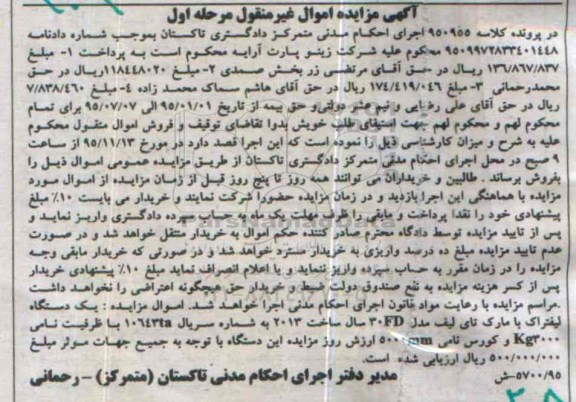 آگهی مزایده اموال غیرمنقول مرحله اول
در پرونده کلاسه ۹۵۰۹۵۵ اجرای احکام مدنی متمرکز دادگستری تاکستان بموجب شماره دادنامه
۹۵۰۹۹۷۲۸۳۳۴۰۱۴۴۸ محکوم علیه شرکت زینو پارت آرایه محکوم است به پرداخت ۱- مبلغ
۱۳۶/۸۶۷/۸۳۷ ریال در حق آقای مرتضی زر بخش صمدی ۲- مبلغ ۱۱۸۴۴۸۰۲۰ ریال در حق
محمدرحمانی ۳- مبلغ ۱۷۴/۴۱۹/۰۴۶ ریال در حق آقای هاشم سماک محمد زاده ۴- مبلغ ۷/۸۳۸/۴۶۰
ریال در حق آقای علی رضایی و نیم عشر دولتی و حق بیمه از تاریخ ۹۵/۰۱/۰۱ الی ۹۵/۰۷/۰۷ برای تمام
محکوم لهم و محکوم لهم جهت استیفای طلب خویش بدوا تقاضای توقیف و فروش اموال منقول محکوم
علیه به شرح و میزان کارشناسی ذیل را نموده است که این اجرا قصد دارد در مورخ ۹۵/۱۱/۱۳ از ساعت
۹ صبح در محل اجرای احکام مدنی متمرکز دادگستری تاکستان از طریق مزایده عمومی اموال ذیل را
بفروش برساند . طالبین و خریداران می توانند همه روز تا پنج روز قبل از زمان مزایده از اموال مورد
مزایده با هماهنگی این اجرا بازدید و در زمان مزایده حضورا شرکت نمایند و خریدار می بایست ۱۰٪ مبلغ
پیشنهادی خود را نقدا پرداخت و مابقی را ظرف مهلت یک ماه به حساب سپرده دادگستری واریز نماید و
پس از تایید مزایده توسط دادگاه محترم صادر کننده حکم اموال به خریدار منتقل خواهد شد و در صورت
عدم تایید مزایده مبلغ ده درصد واریزی به خریدار مسترد خواهد شد و در صورتی که خریدار مابقی وجه
مزایده را در زمان مقرر به حساب سپرده واریز ننماید و یا اعلام انصراف نماید مبلغ ۱۰٪ پیشنهادی خریدار
پس از کسر هزینه مزایده به نفع صندوق دولت ضبط و خریدار حق هیچگونه اعتراضی را نخواهد داشت
.مراسم مزایده با رعایت مواد قانون اجرای احکام مدنی اجرا خواهد شد. اموال مزایده : یک دستگاه
لیفتراک با مارک تای لیف مدل ۳۰FD سال ساخت ۲۰۱۳ به شماره سریال ۱۰۶۴۳tn با ظرفیت نامی
Kg۳۰۰۰ و کورس نامی ۵۰۰۰mm ارزش روز مزایده این دستگاه با توجه به جمیع جهات موثر مبلغ
۵۰۰/۰۰۰/۰۰۰ ریال ارزیابی شده است.
۵۷۰۰/۹۵-ش مدیر دفتر اجرای احکام مدنی تاکستان (متمرکز) - رحمانی